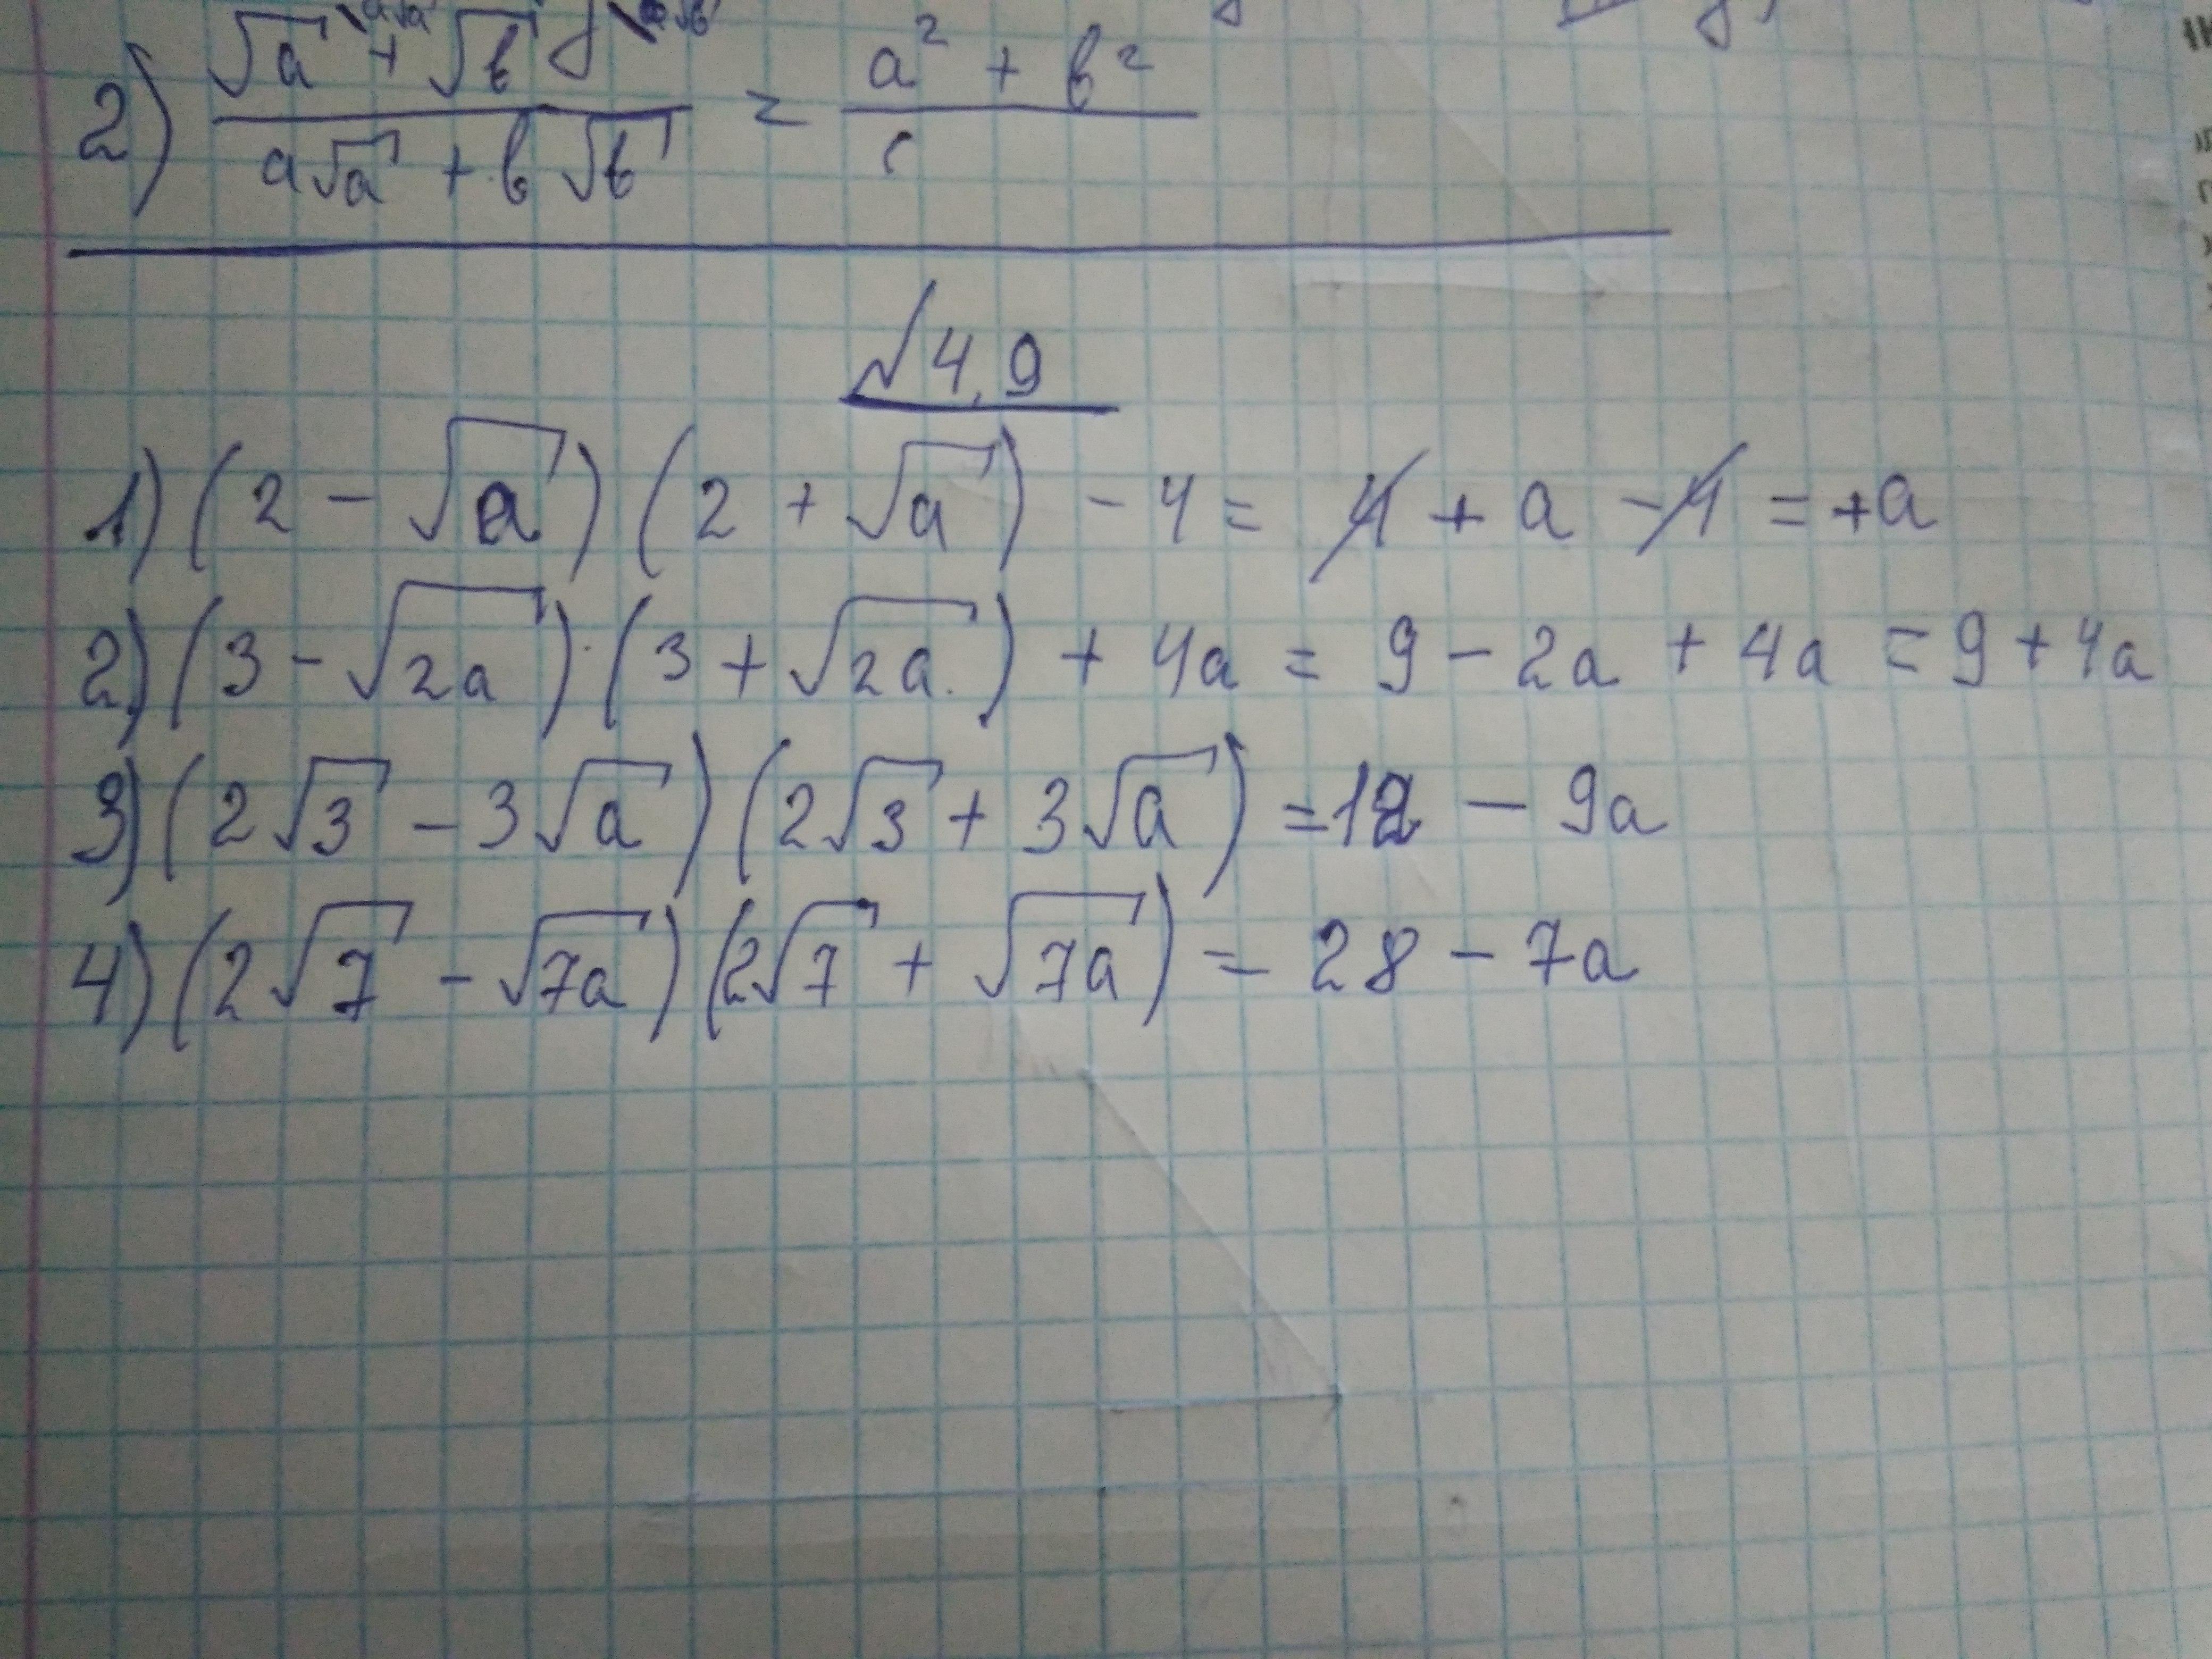 2) √a + √b / a√a + b√b = a² + b² /
√4,9
1) (2 - √a) (2 + √a) - 4 = 4 + a - 4 = +a
2) (3 - √2a) · (3 + √2a) + 4a = 9 - 2a + 4a = 9 + 4a
3) (2√3 - 3√a) (2√3 + 3√a) = 12 - 9a
4) (2√7 - √7a) (2√7 + √7a) = 28 - 7a